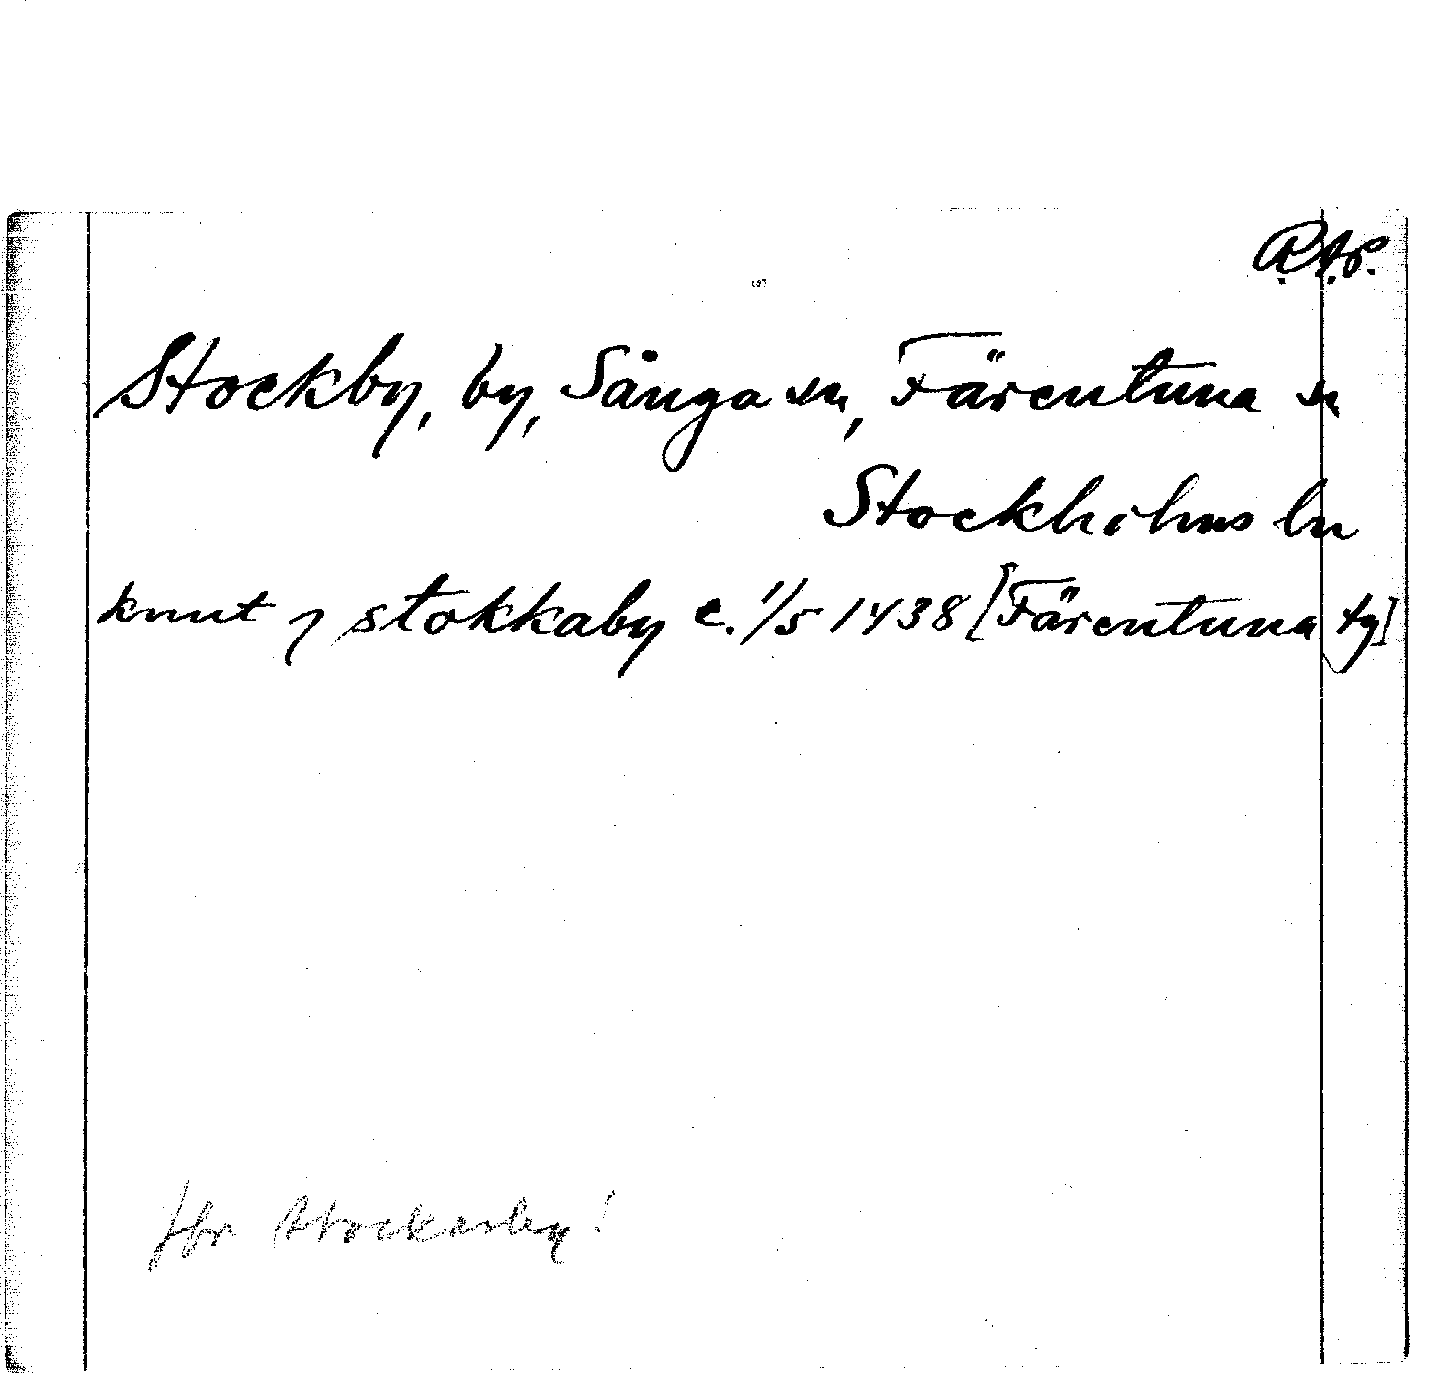 R.Ap.
Stockby, by, Sånga sn, Färentuna sn
Stockholms ln
knut ҙ stokkaby c. 1/5 1438 [Färentuna tg]
Jfr Stockarby!